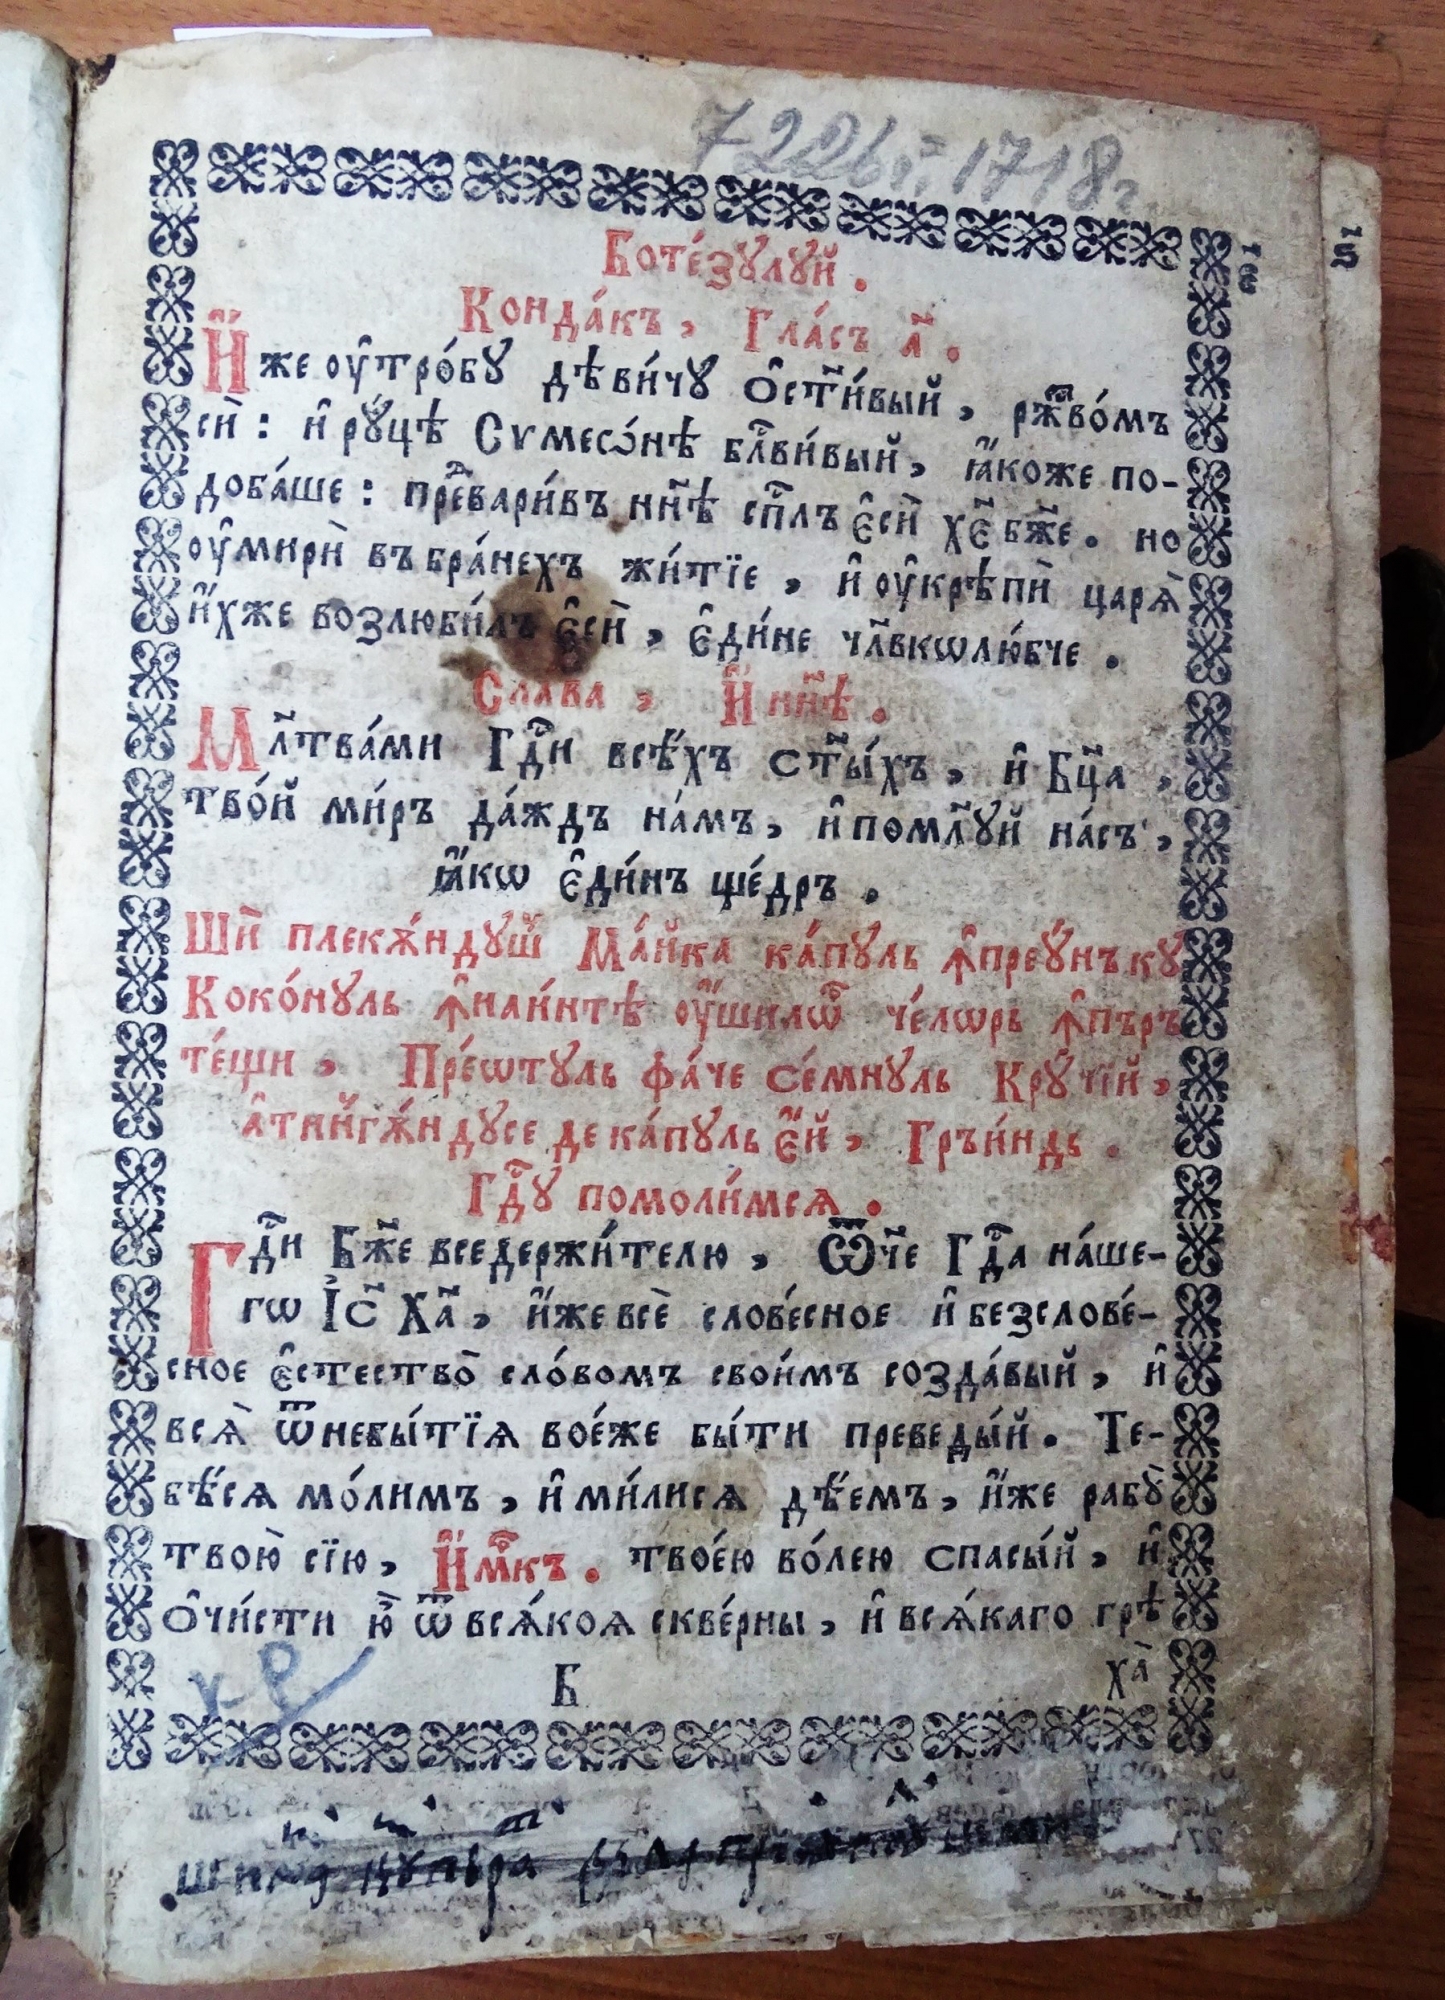 7226г. 1718г
Боте́зꙋлꙋй.
Конда́къ, Гла́съ а҃.
И҆́же ᲂу҆тро́бꙋ дѣви́чꙋ ѻ҆ст҃и́вый, ржⷭ҇тво́мъ
си̑: и҆ рꙋ́цѣ Сѵмеѡ́нѣ блⷭ҇ви́вый, ꙗ҆́коже по-
доба́ше: предⷭ҇вари́въ нн҃ѣ сп҃лъ є҆сѝ хе҃ бж҃е. но
ᲂу҆мирѝ въ бра́нехъ жи́тїе, и҆ ᲂу҆крѣпѝ царѧ̀
и҆́хже возлюби́лъ є҆сѝ, є҆ди́не чл҃вкѡлю́бче.
Слава, И҆ нн҃ѣ.
Мл҃тва́ми Гдⷭ҇и всѣ́хъ ст҃ы́хъ, и҆ Бц҃а,
тво́й ми́ръ да́ждъ на́мъ, и҆ помл҃ꙋй на́съ,
ꙗ҆́кѡ є҆ди́нъ ще́дръ.
Шѝ плекѫ́ндꙋш Ма́йка ка́пꙋль ꙟ҆преꙋ́нъкꙋ
Коко́нꙋль ꙟ҆наи́нтѣ ᲂу҆́шилѡⷬ҇ че́лѡрь ꙟ҆пъръ
те́щи, Пре́ѡтꙋль фа́че се́мнꙋль Крꙋ́чїй,
а҆тинⷢ҇гѫ́ндꙋсе де ка́пꙋль є҆́й, Гръи́ндь.
Гдⷭ҇ꙋ помоли́мсѧ.
Гдⷭ҇и Бж҃е вседержи́телю, Ѿч҃е Гдⷭ҇а на́ше-
гѡ І҆с҃ Ха҃, и҆́же всѐ слове́сное и҆ безслове́-
сное є҆стество̀ сло́вомъ свои́мъ созда́вый, и҆
всѧ̀ ѿнебы́тїѧ воє́же бы́ти преведы́й. Те-
бѣ́сѧ мо́лимъ, и҆ ми́лисѧ дѣ́емъ, и҆́же рабꙋ̀
твою̀ сїю, И҆́мⷬ҇къ. твоє́ю во́лею спасы́й, и҆
Ѻ҆чи́сти ю҆̀ ѿ всѧ́коѧ скве́рны, и҆ всѧ́каго грѣ
Б ха̀